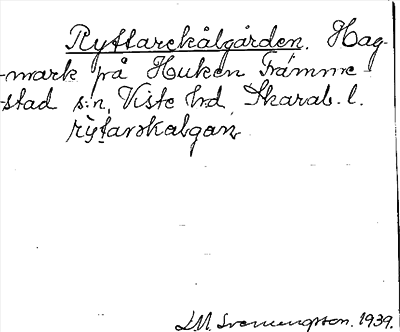 Ryttarekålgården. Hag-
-mark på Huken Främme-
-stad s:n, Viste hd, Skarab. l.
rỳtarskalgan
L.M. Svenungsson. 1939.